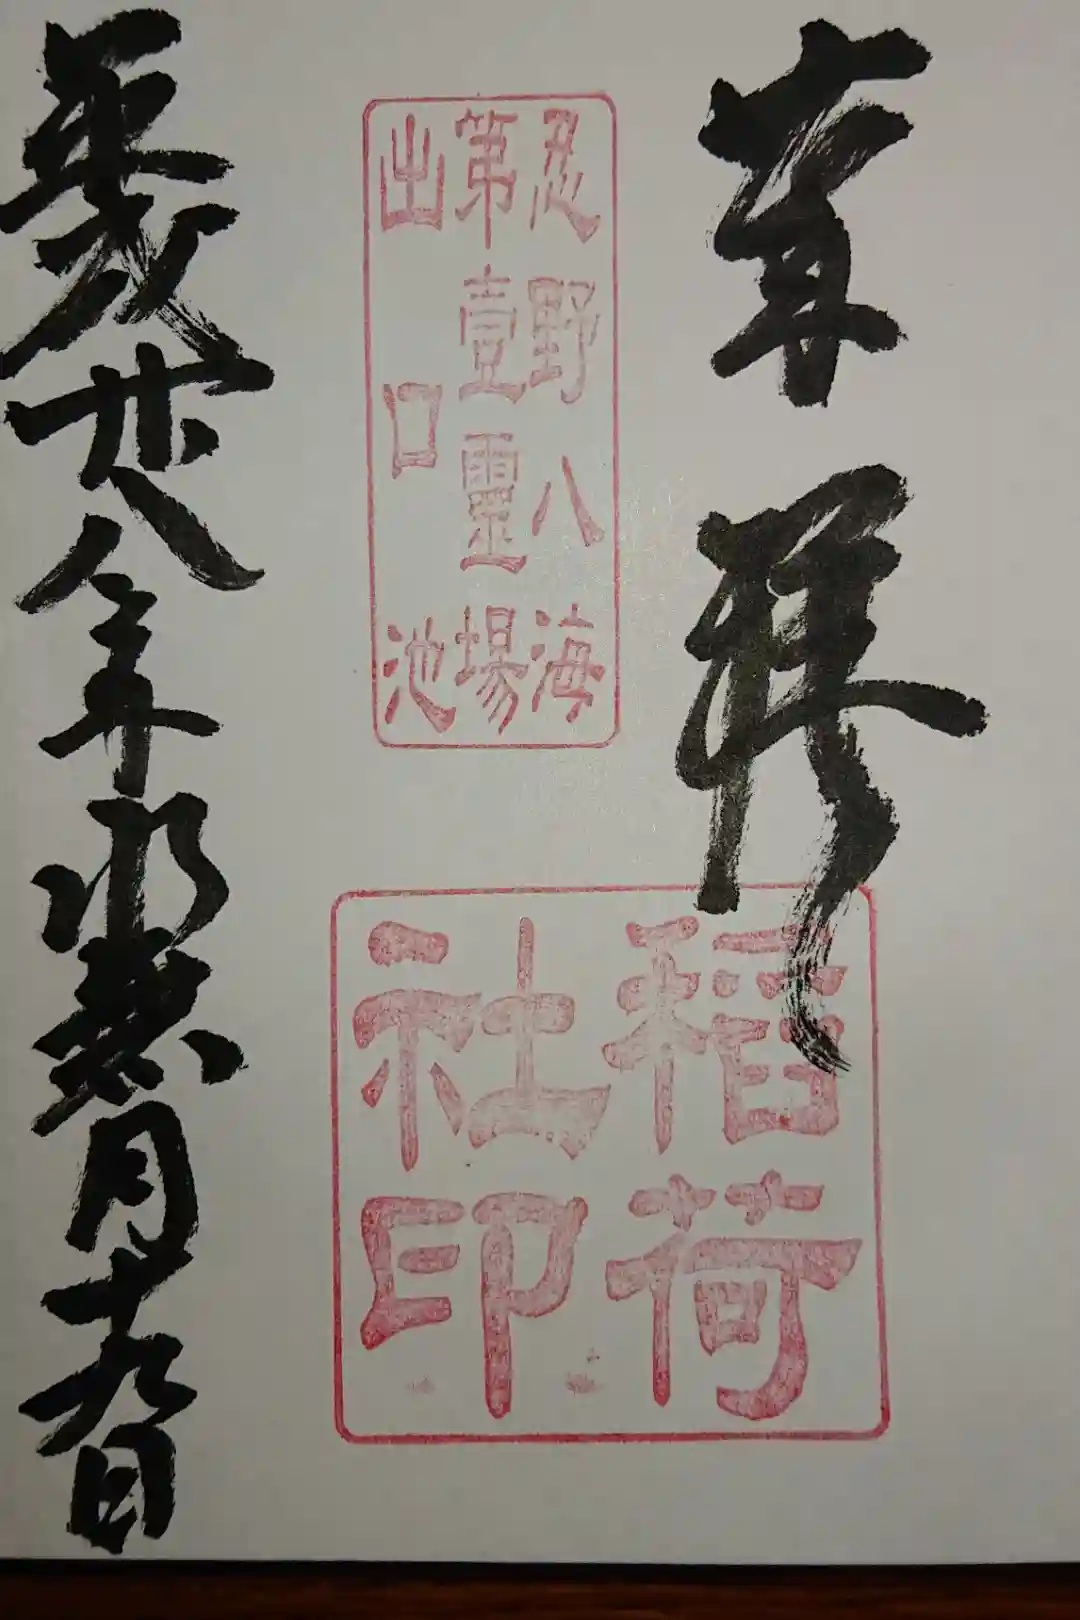 奉拝
忍野八海
第壹靈場
出口池
稲荷
社印
平成廿八年水無月十九日